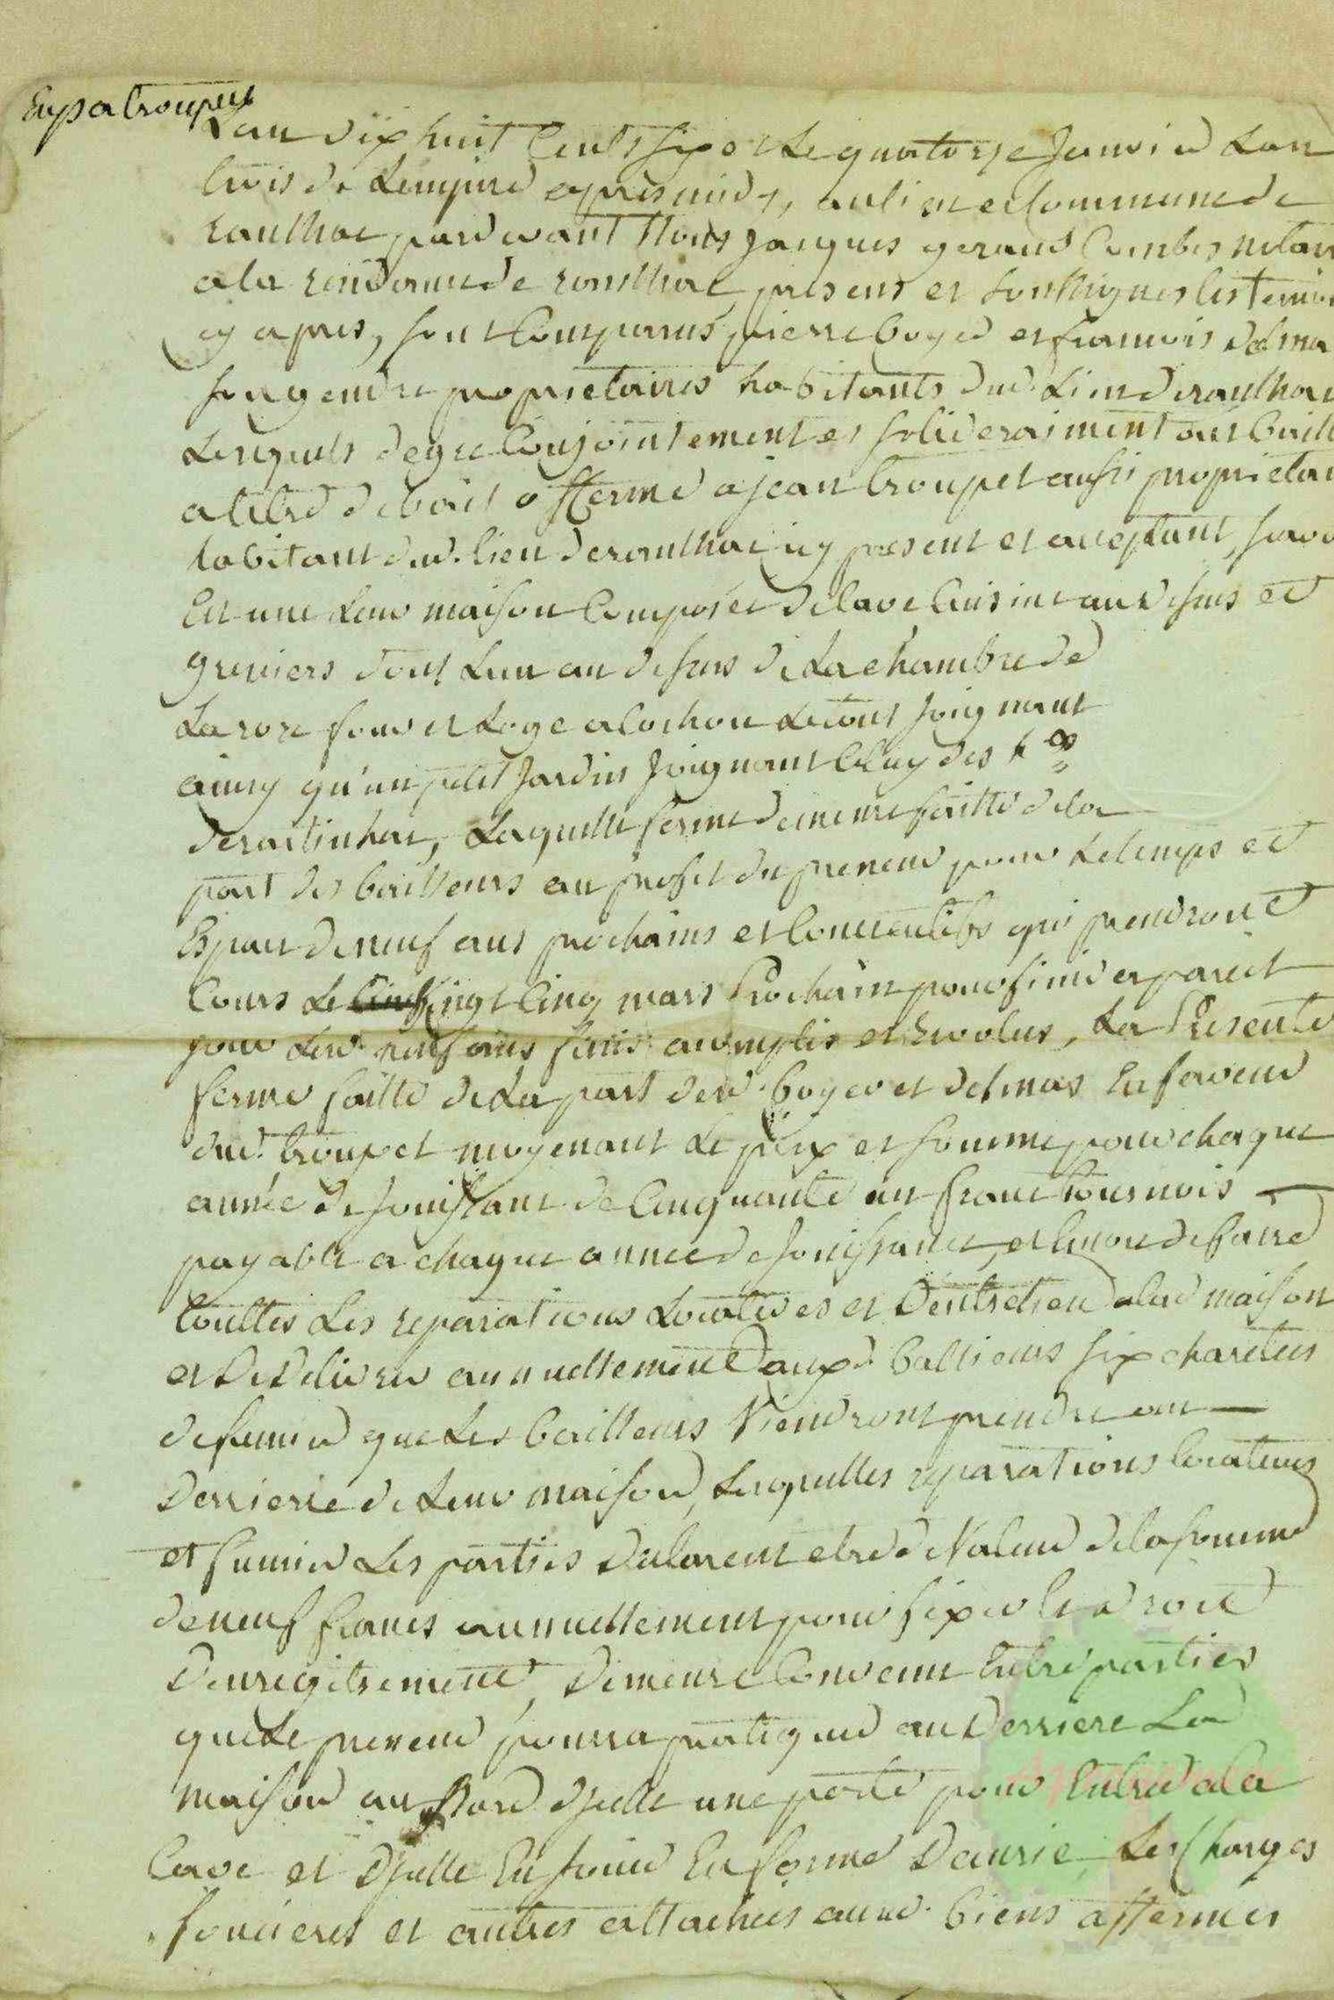 Exp a troupet
L'an dix huit Cents six et le quatorze Janvier Lan
trois de Lempire apres midy, au lieu et Commune de
raulhac pardevant Nous Jacques geraud Combes notair
a la residance de raulhac, present et soussignes les temoi
cy apres, sont Comparus pierre boyer et francois delma
son gendre proprietaires habitants dud. Lieu de raulhac
Lesquels de gre Conjointement et soliderairment ont baille
a titre de bail a fferme a jean troupet aussi proprietai
habitant dud. lieu de raulhac icy present et aceptant, savo
Est une Leur maison Composée de Cave Cuisine au dessus et
greniers dont Lun au dessus de La chambre de
La rore four et Loge a Cochon Le tout Joignant
ainsy qu'un petit Jardin Joignant Celuy des h.
de rastinhac, Laquelle ferme demeure faitte de la
part des bailleurs au profit du preneur pour Le temps et
Espace de neuf ans prochains et Consecutifs qui prendront
Cours Le vingt Cinq mars Prochain pour finir a pareil
jour Lesd. neuf ans finis accomplis et Revolus, La Presente
ferme faitte de La part desd. boyer et delmas En faveur
dud. troupet moyenant Le prix et somme pour chaque
année de jouissance de Cinquante un franc tournois
payable a chaque annee de Jouissance, et Encore de faire
touttes Les reparations Locatives et Dentretien a lad. maison
et De delivrer annuellement auxd. ballieurs six charettes
de fumier que Les bailleurs Viendront prendre au
Derriere de Leur maison, Lesquelles reparations locatives
et fumier Les parties Declarent etre de Valeur de la somme
de neuf francs annuellement pour fixer Le droit
Denregitrement, Demeure Convenu Entre parties
que Le preneur pourra pratiquer au Derriere La
maison au Bord djcelle une porte pour Entrer a la
Cave et Djcelle En jouir En forme Deurie, Les Charges
foncieres et autres attachées auxd. biens affermes